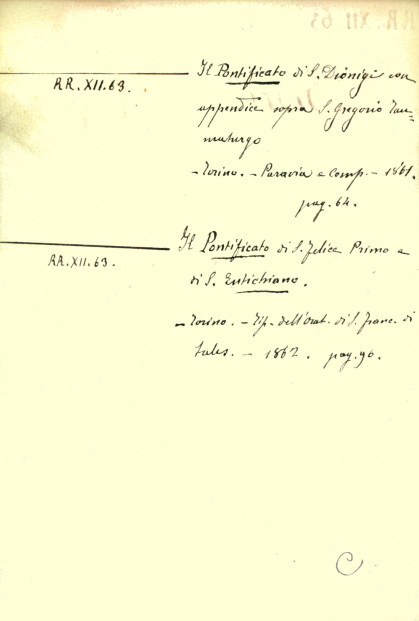 Il Pontificato di S. Dionigi con
RR. XII. 63.
appendice sopra S. Gregorio Tau=
maturgo
- Torino. - Paravia e Comp. - 1861.
pag. 64.
Il Pontificato di S. Felice Primo e
RR. XII. 63.
di S. Eutichiano.
- Torino. - Tip. dell'Orat. di S. Franc. di
Sales. - 1862. pag. 90.
C